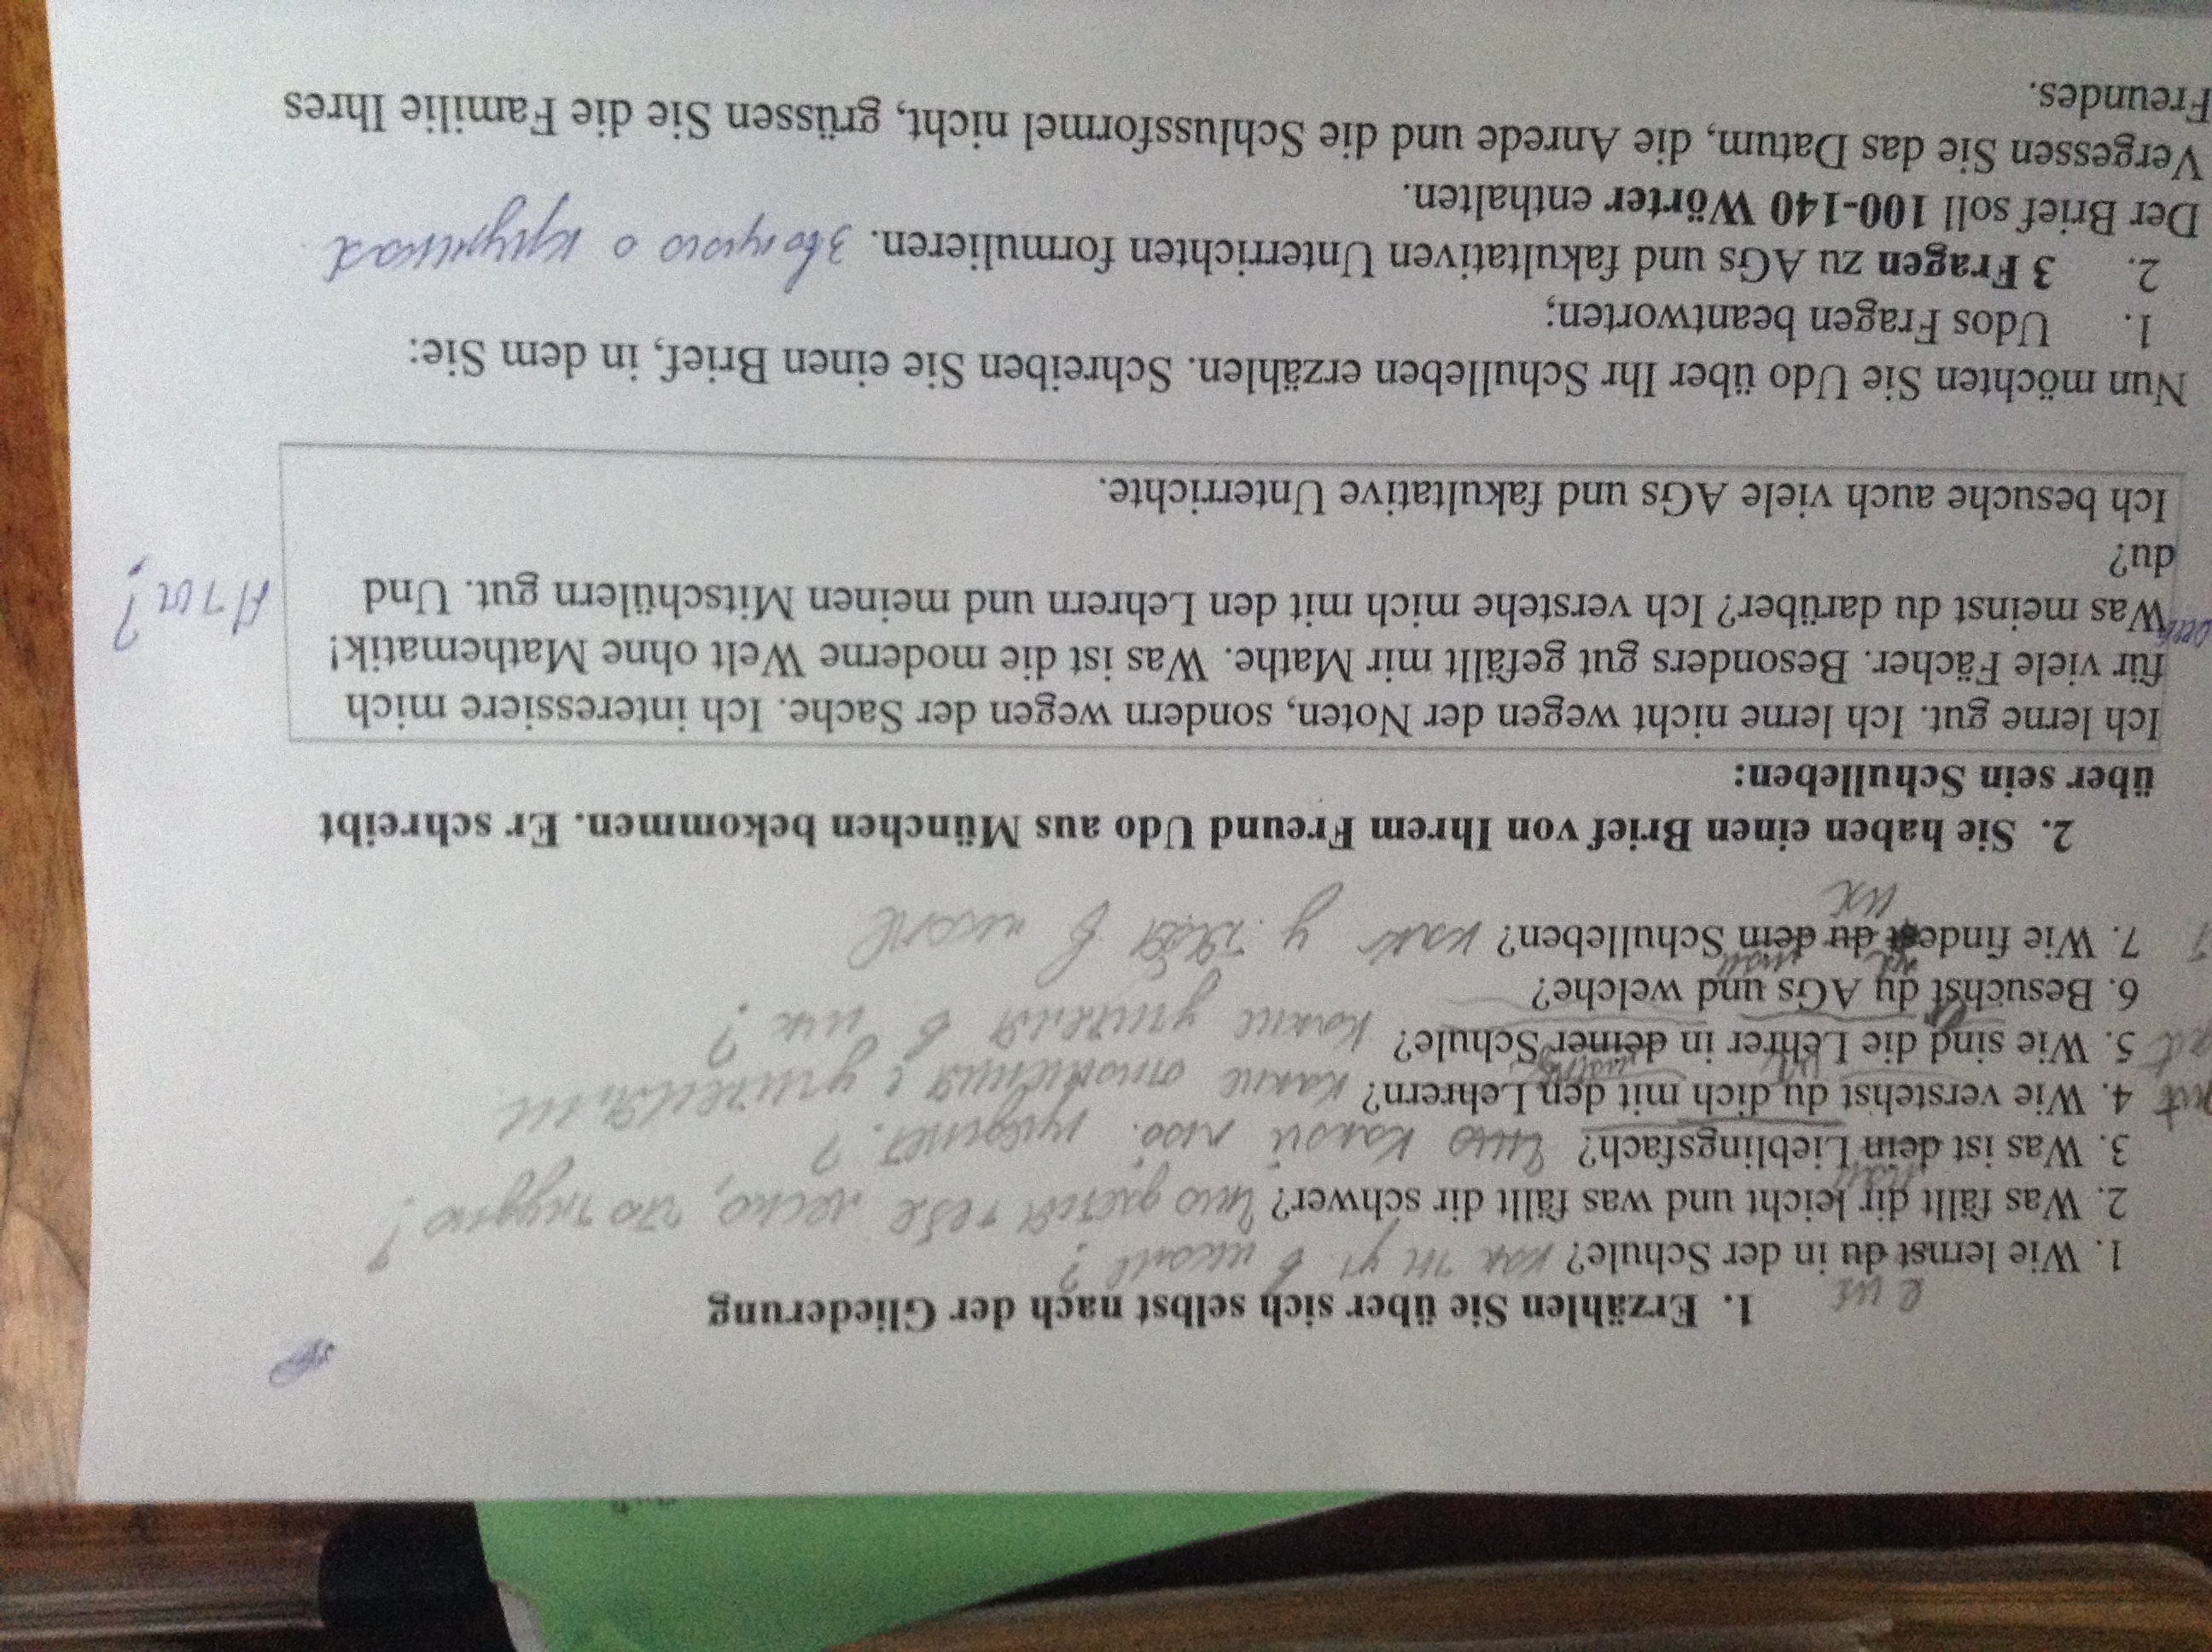 1. Erzählen Sie über sich selbst nach der Gliederung
1. Wie lernst du in der Schule? как ты уч. в школе?
2. Was fällt dir leicht und was fällt dir schwer? Что дается тебе легко, что трудно?
3. Was ist dein Lieblingsfach? какой люб. предмет?
4. Wie verstehst du dich mit den Lehrern? какие отношения с учителями
5. Wie sind die Lehrer in deiner Schule? какие учителя в шк?
6. Besuchst du AGs und welche?
7. Wie findest du dein Schulleben? как у тебя в школе
2. Sie haben einen Brief von Ihrem Freund Udo aus München bekommen. Er schreibt
über sein Schulleben:
Ich lerne gut. Ich lerne nicht wegen der Noten, sondern wegen der Sache. Ich interessiere mich
für viele Fächer. Besonders gut gefällt mir Mathe. Was ist die moderne Welt ohne Mathematik!
Was meinst du darüber? Ich verstehe mich mit den Lehrern und meinen Mitschülern gut. Und
du?
А ты?
Ich besuche auch viele AGs und fakultative Unterrichte.
Nun möchten Sie Udo über Ihr Schulleben erzählen. Schreiben Sie einen Brief, in dem Sie:
1. Udos Fragen beantworten;
2. 3 Fragen zu AGs und fakultativen Unterrichten formulieren. 3 вопроса о кружках
Der Brief soll 100-140 Wörter enthalten.
Vergessen Sie das Datum, die Anrede und die Schlussformel nicht, grüssen Sie die Familie Ihres
Freundes.